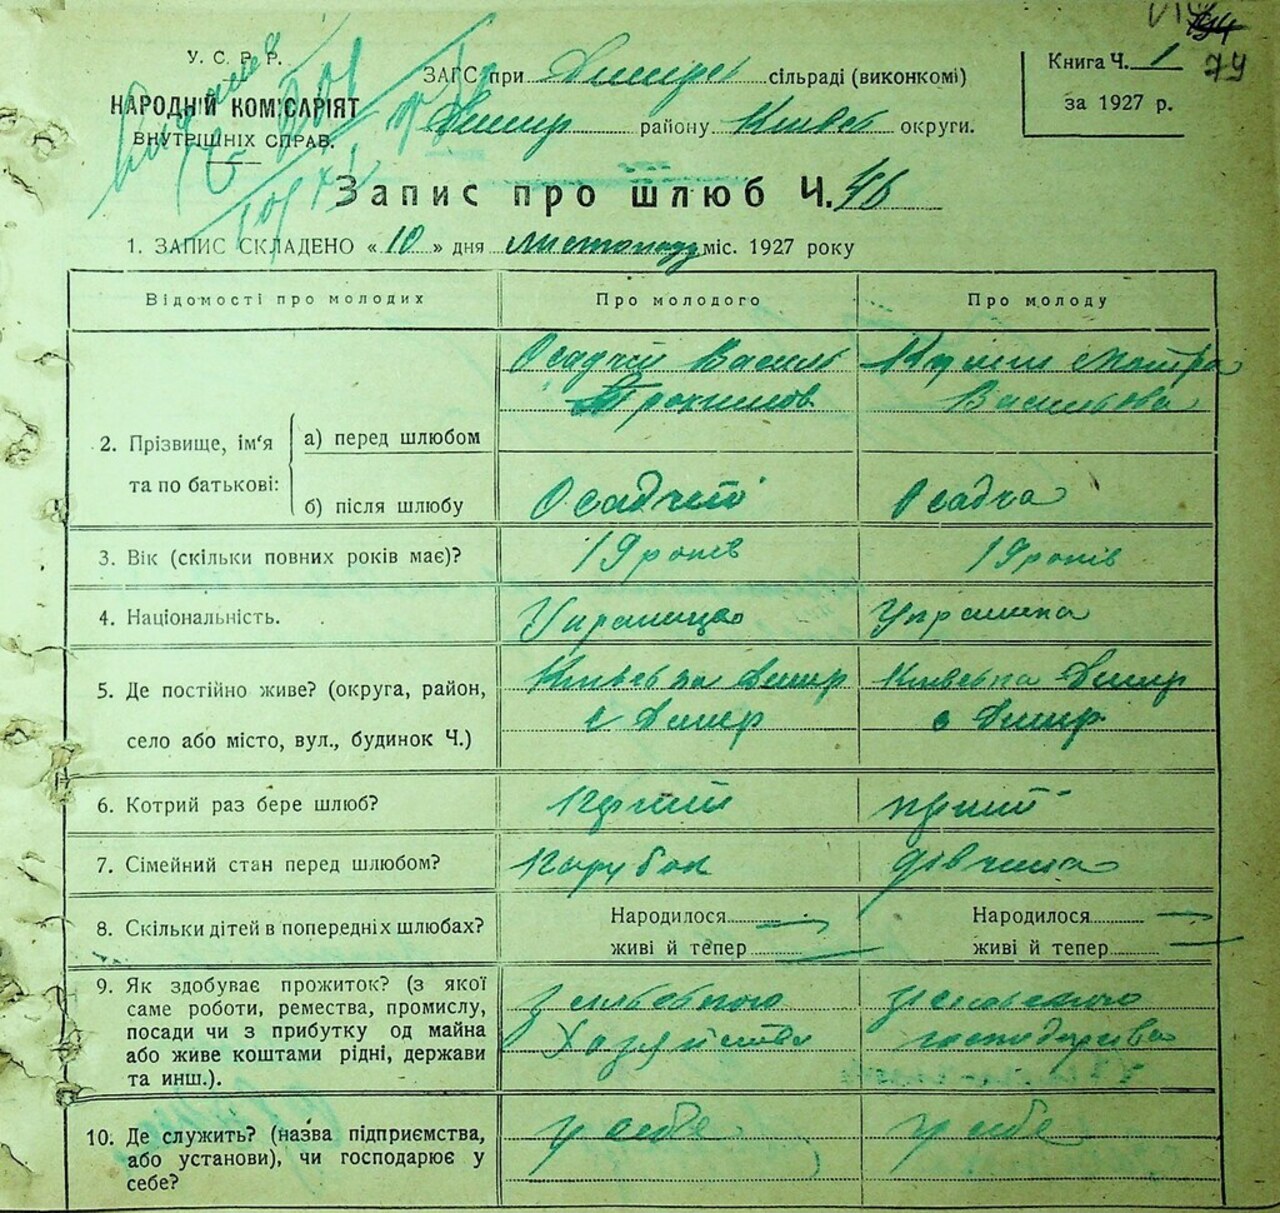 У. С. Р. Р.
НАРОДНІЙ КОМІСАРІЯТ
ВНУТРІШНІХ СПРАВ.
ЗАГС при Димерс сільраді (виконкомі)
Димер району Київс округи.
Книга Ч. 1
за 1927 р.
74
Запис про шлюб Ч. 46
1. ЗАПИС СКЛАДЕНО « 10 » дня листопаду міс. 1927 року
Відомості про молодих
Про молодого
Про молоду
2. Прізвище, ім'я та по батькові:
а) перед шлюбом
Осадчий Василь
Трохимов
Мотра
Васильова
б) після шлюбу
Осадчий
Осадча
3. Вік (скільки повних років має)?
19 років
19 років
4. Національність.
Українець
Українка
5. Де постійно живе? (округа, район,
село або місто, вул., будинок Ч.)
Київська Димер
с Димер
Київська Димер
с Димер
6. Котрий раз бере шлюб?
перший
перший
7. Сімейний стан перед шлюбом?
парубок
дівчина
8. Скільки дітей в попередніх шлюбах?
Народилося —
живі й тепер —
Народилося —
живі й тепер —
9. Як здобуває прожиток? (з якої
саме роботи, ремества, промислу,
посади чи з прибутку од майна
або живе коштами рідні, держави
та инш.).
з сільського
хазяйства
з сільського
господарства
10. Де служить? (назва підприємства,
або установи), чи господарює у
себе?
у себе
у себе